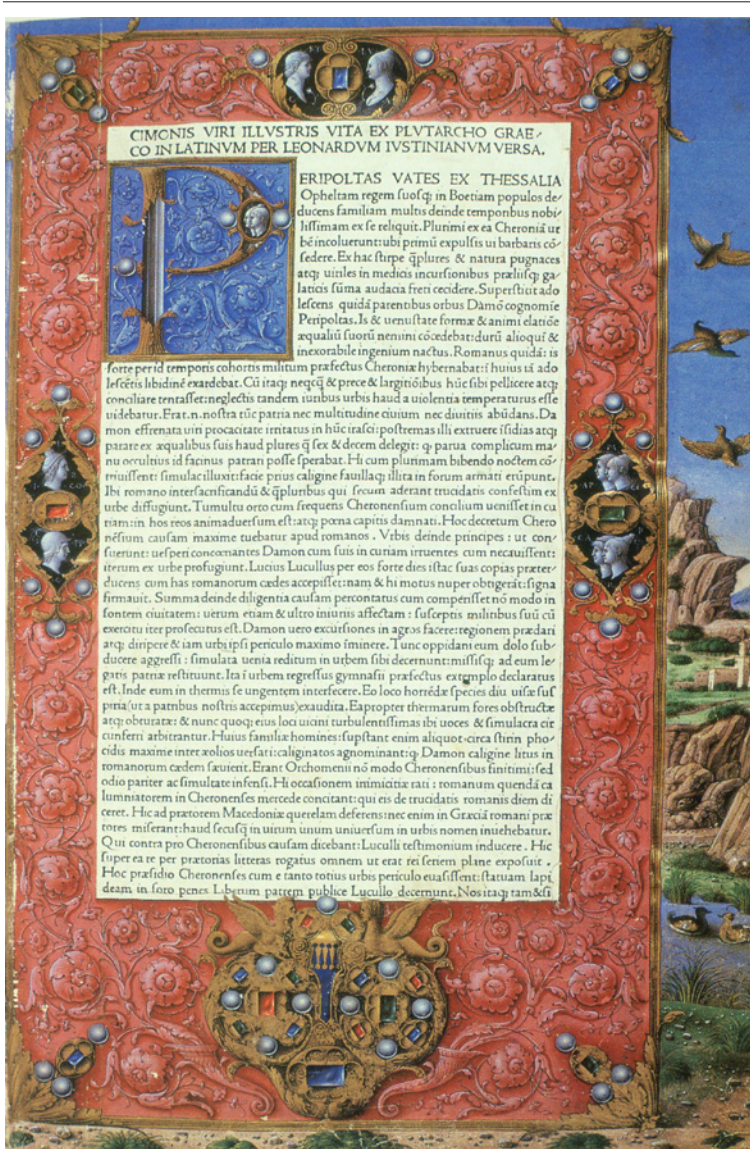 CIMONIS VIRI ILLVSTRIS VITA EX PLVTARCHO GRAE/
CO IN LATINVM PER LEONARDVM IVSTINIANVM VERSA.
P
ERIPOLTAS VATES EX THESSALIA
Opheltam regem suosq; in Boetiam populos de/
ducens familiam multis deinde temporibus nobi/
lissimam ex se reliquit. Plurimi ex ea Cheroniā ur
bē incoluerunt: ubi primū expulsis ui barbaris cō/
sedere. Ex hac stirpe q̄plures & natura pugnaces
atq; uiriles in medicis incursionibus præliisq; ga/
laticis sūma audacia freti cecidere. Superstitit ado
lescens quidā parentibus orbus Dāmō cognomīe
Peripoltas. Is & uenustate formæ & animi elatiōe
æqualiū suorū nemini cōcedebat: durū alioqui &
inexorabile ingenium nactus. Romanus quidā: is
forte per id temporis cohortis militum præfectus Cheroniæ hybernabat: ī huius iā ado
lescētis libidinē exardebat. Cū itaq; neqcq̄ & prece & largitiōibus hūc sibi pellicere atq;
conciliare tentasset: neglectis tandem iuribus urbis haud a uiolentia temperaturus esse
uidebatur. Erat .n. nostra tūc patria nec multitudine ciuium nec diuitiis abūdans. Da
mon effrenata uiri procacitate irritatus in hūc irasci: postremas illi extruere īsidias atq;
parare ex æqualibus suis haud plures q̄ sex & decem delegit: q. parua complicum ma/
nu occultius id facinus patrari posse sperabat. Hi cum plurimam bibendo noctem cō/
triuissent: simulac illuxit: facie prius caligine fauillaq; illita in forum armati erūpunt.
Ibi romano intersacrificandū & q̄pluribus qui secum aderant trucidatis confestim ex
urbe diffugiunt. Tumultu orto cum frequens Cheronensium concilium uenisset in cu
riam: in hos reos animaduersum est: atq; pœna capitis damnati. Hoc decretum Chero
nēsium causam maxime tuebatur apud romanos. Vrbis deinde principes: ut con/
suerunt: uesperi concœnantes Damon cum suis in curiam irruentes cum necauissent:
iterum ex urbe profugiunt. Lucius Lucullus per eos forte dies istac suas copias præter/
ducens cum has romanorum cædes accepisset: nam & hi motus nuper obtigerāt: signa
firmauit. Summa deinde diligentia causam percontatus cum comperisset nō modo in
sontem ciuitatem: uerum etiam & ultro iniuriis affectam: susceptis militibus suū cū
exercitu iter prosecutus est. Damon uero excursiones in agros facere: regionem prædari
atq; diripere & iam urbi ipsi periculo maximo īminere. Tunc oppidani eum dolo sub/
ducere aggressi: simulata uenia reditum in urbem sibi decernunt: missisq; ad eum le/
gatis patriæ restituunt. Ita ī urbem regressus gymnasii præfectus extemplo declaratus
est. Inde eum in thermis se ungentem interfecere. Eo loco horrēdæ species diu uisæ sus
piria (ut a patribus nostris accepimus) exaudita. Eapropter thermarum fores obstructæ
atq; obturatæ: & nunc quoq; eius loci uicini turbulentissimas ibi uoces & simulacra cir
cunferri arbitrantur. Huius familiæ homines: supstant enim aliquot circa stirin pho/
cidis maxime inter æolios uersati: caliginatos agnominant: q. Damon caligine litus in
romanorum cædem sæuierit. Erant Orchomenii nō modo Cheronensibus finitimi: sed
odio pariter ac simultate infensi. Hi occasionem inimicitiæ rati: romanum quendā ca
lumniatorem in Cheronenses mercede concitant: qui eis de trucidatis romanis diem di
ceret. Hic ad prætorem Macedoniæ querelam deferens: nec enim in Græciā romani præ
tores miserant: haud secusq̄ in uirum unum uniuersum in urbis nomen inuehebatur.
Qui contra pro Cheronensibus causam dicebant: Luculli testimonium inducere. Hic
super ea re per prætorias litteras rogatus omnem ut erat rei seriem plane exposuit.
Hoc præsidio Cheronenses cum e tanto totius urbis periculo euasissent: statuam lapi
deam in foro penes Liberum patrem publice Lucullo decernunt. Nos itaq; tam & si